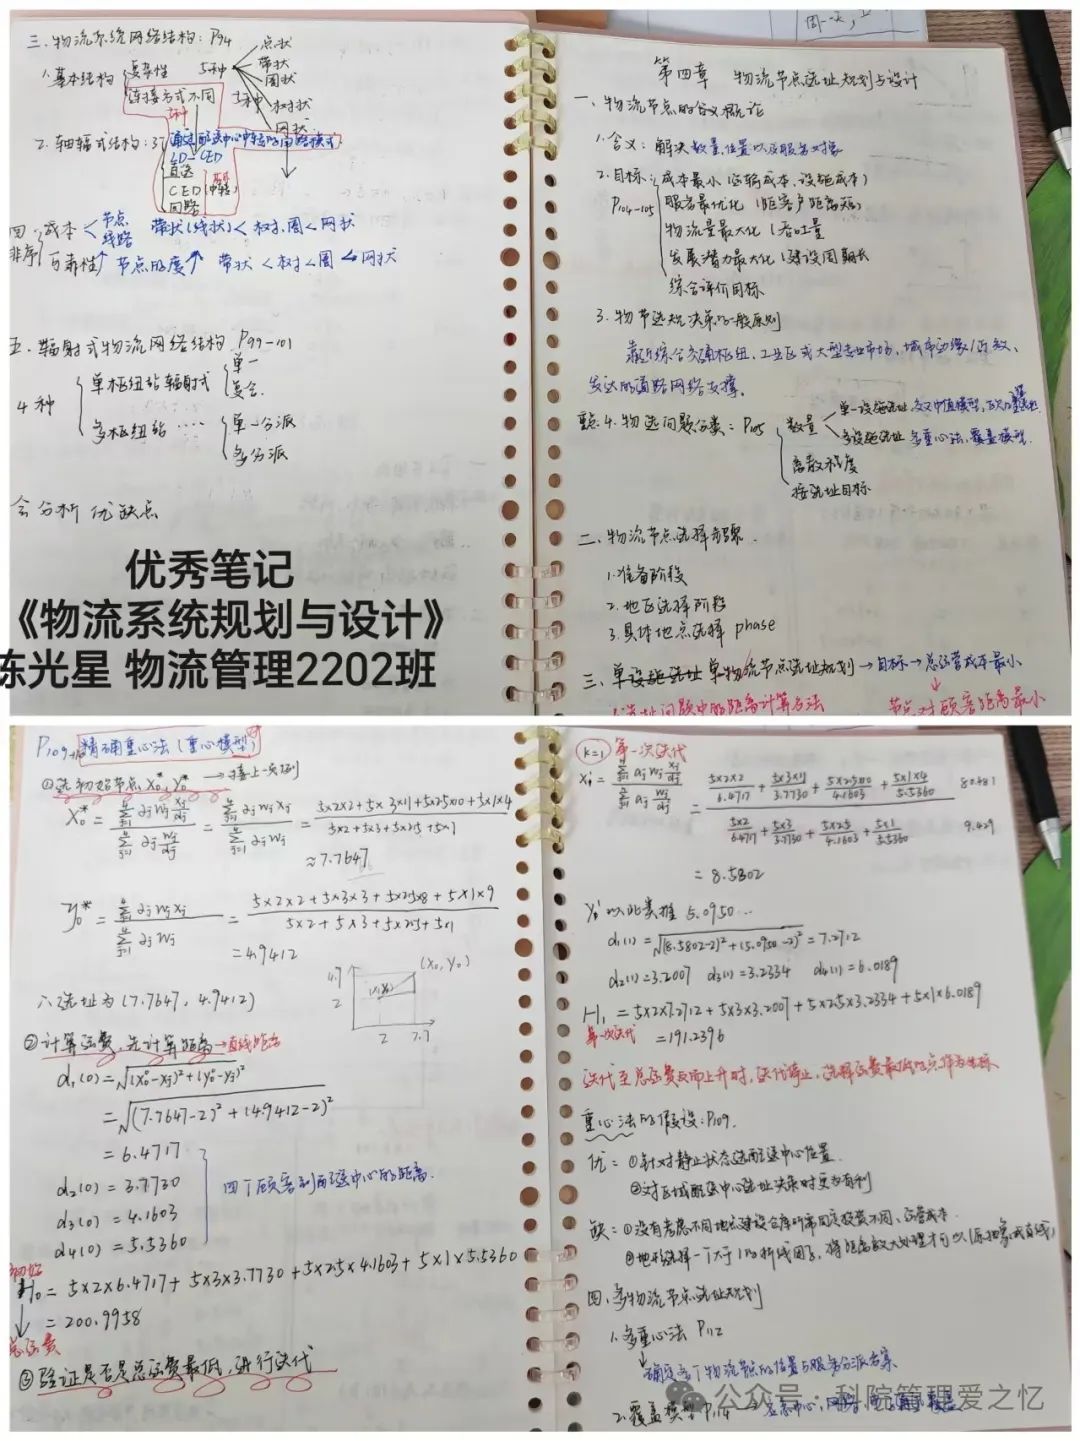 三.物流系统网络结构：P94
1.基本结构 复杂性 5种 点状
带状
圆状
连接方式不同 3种 树状
3种 网状
2.轴辐式结构：3种 通过配送中心中转的回路模式
LD-CED
直送
CED(中转)
回路
四.成本<节点 线路 带状(线状)<树、圈<网状
非序 可靠性↑ 节点的度↑ 带状<树<圈<网状
五.辐射式物流网络结构 P99-101
4种 单枢纽站辐射式 单一
复合
多枢纽站 …… 单一分派
多分派
会分析优缺点
优秀笔记
《物流系统规划与设计》
陈光星 物流管理2202班
第四章 物流节点选址规划与设计
一、物流节点的含义概论
1.含义：解决数量、位置以及服务对象
2.目标：成本最小(运输成本、设施成本)
P104-105 服务最优化(距客户距离短)
物流量最大化(吞吐量
发展潜力最大化(建设周期长
综合评价目标
3.物节选规决策的一般原则
靠近综合交通枢纽、工业区或大型专业市场、城市边缘
发达的道路网络支撑。
重点 4.物选问题分类：P105 数量 单一设施选址 交叉中值模型，
多设施选址 多重心法，覆盖模型.
离散程度
按选址目标
二、物流节点选择步骤.
1.准备阶段
2.地区选择阶段
3.具体地点选择 phase
三、单设施选址 单物流节点选址规划→目标→总运营成本最小
1.选址问题中的距离计算方法 节点对顾客距离最小
P109 精确重心法(重心模型)
①选初始节点 X₀*、Y₀* →接上一次例
X₀* = = = 5×2×2+5×3×11+5×2.5×10+5×1×4
5×2+5×3+5×2.5+5×1
≈7.7647
y₀* = = 5×2×2+5×3×3+5×2.5×8+5×1×9
5×2+5×3+5×2.5+5×1
=4.9412
(x₀,y₀)
4.7
2
2 7.7
∴选址为(7.7647，4.9412)
②计算运费，先计算距离→直线距离
d₁(0)=√(x₀-xⱼ)²+(y₀-yⱼ)²
=√(7.7647-2)²+(4.9412-2)²
=6.4717
d₂(0)=3.7730 四个顾客到配送中心的距离.
d₃(0)=4.1603
d₄(0)=5.5360
初始
H₀=5×2×6.4717+5×3×3.7730+5×2.5×4.1603+5×1×5.5360
=200.9958
总运费
③验证是否是总运费最低，进行迭代
k=1 第一次迭代
X₁' = = 5×2×2/6.4717+5×3×11/3.7730+5×2.5×10/4.1603+5×1×4/5.5360 80.481
5×2/6.4717+5×3/3.7730+5×2.5/4.1603+5×1/5.5360 9.429
=8.5802
y₁'以此类推 5.0950…
d₁(1)=√(8.5802-2)²+(5.0950-2)²=7.2712
d₂(1)=3.2007 d₃(1)=3.2334 d₄(1)=6.0189
H₁=5×2×7.2712+5×3×3.2007+5×2.5×3.2334+5×1×6.0189
第一次迭代 =191.2396
迭代至总运费反而上升时，迭代停止，选择运费最低的点作为坐标
重心法的假设：P109.
优：①针对静止状态选配送中心位置.
②对区域配送中心选址决策时更为有利
缺：①没有考虑不同地点建设仓库所需固定投资不同、运营成本.
②地形选择一个大于1的折线因子，将距离放大处理才可以
四、多物流节点选址规划
1.多重心法 P112
确定多个物流节点的位置与服务分派方案
2.覆盖模型 P114
公众号·科院管理爱之忆